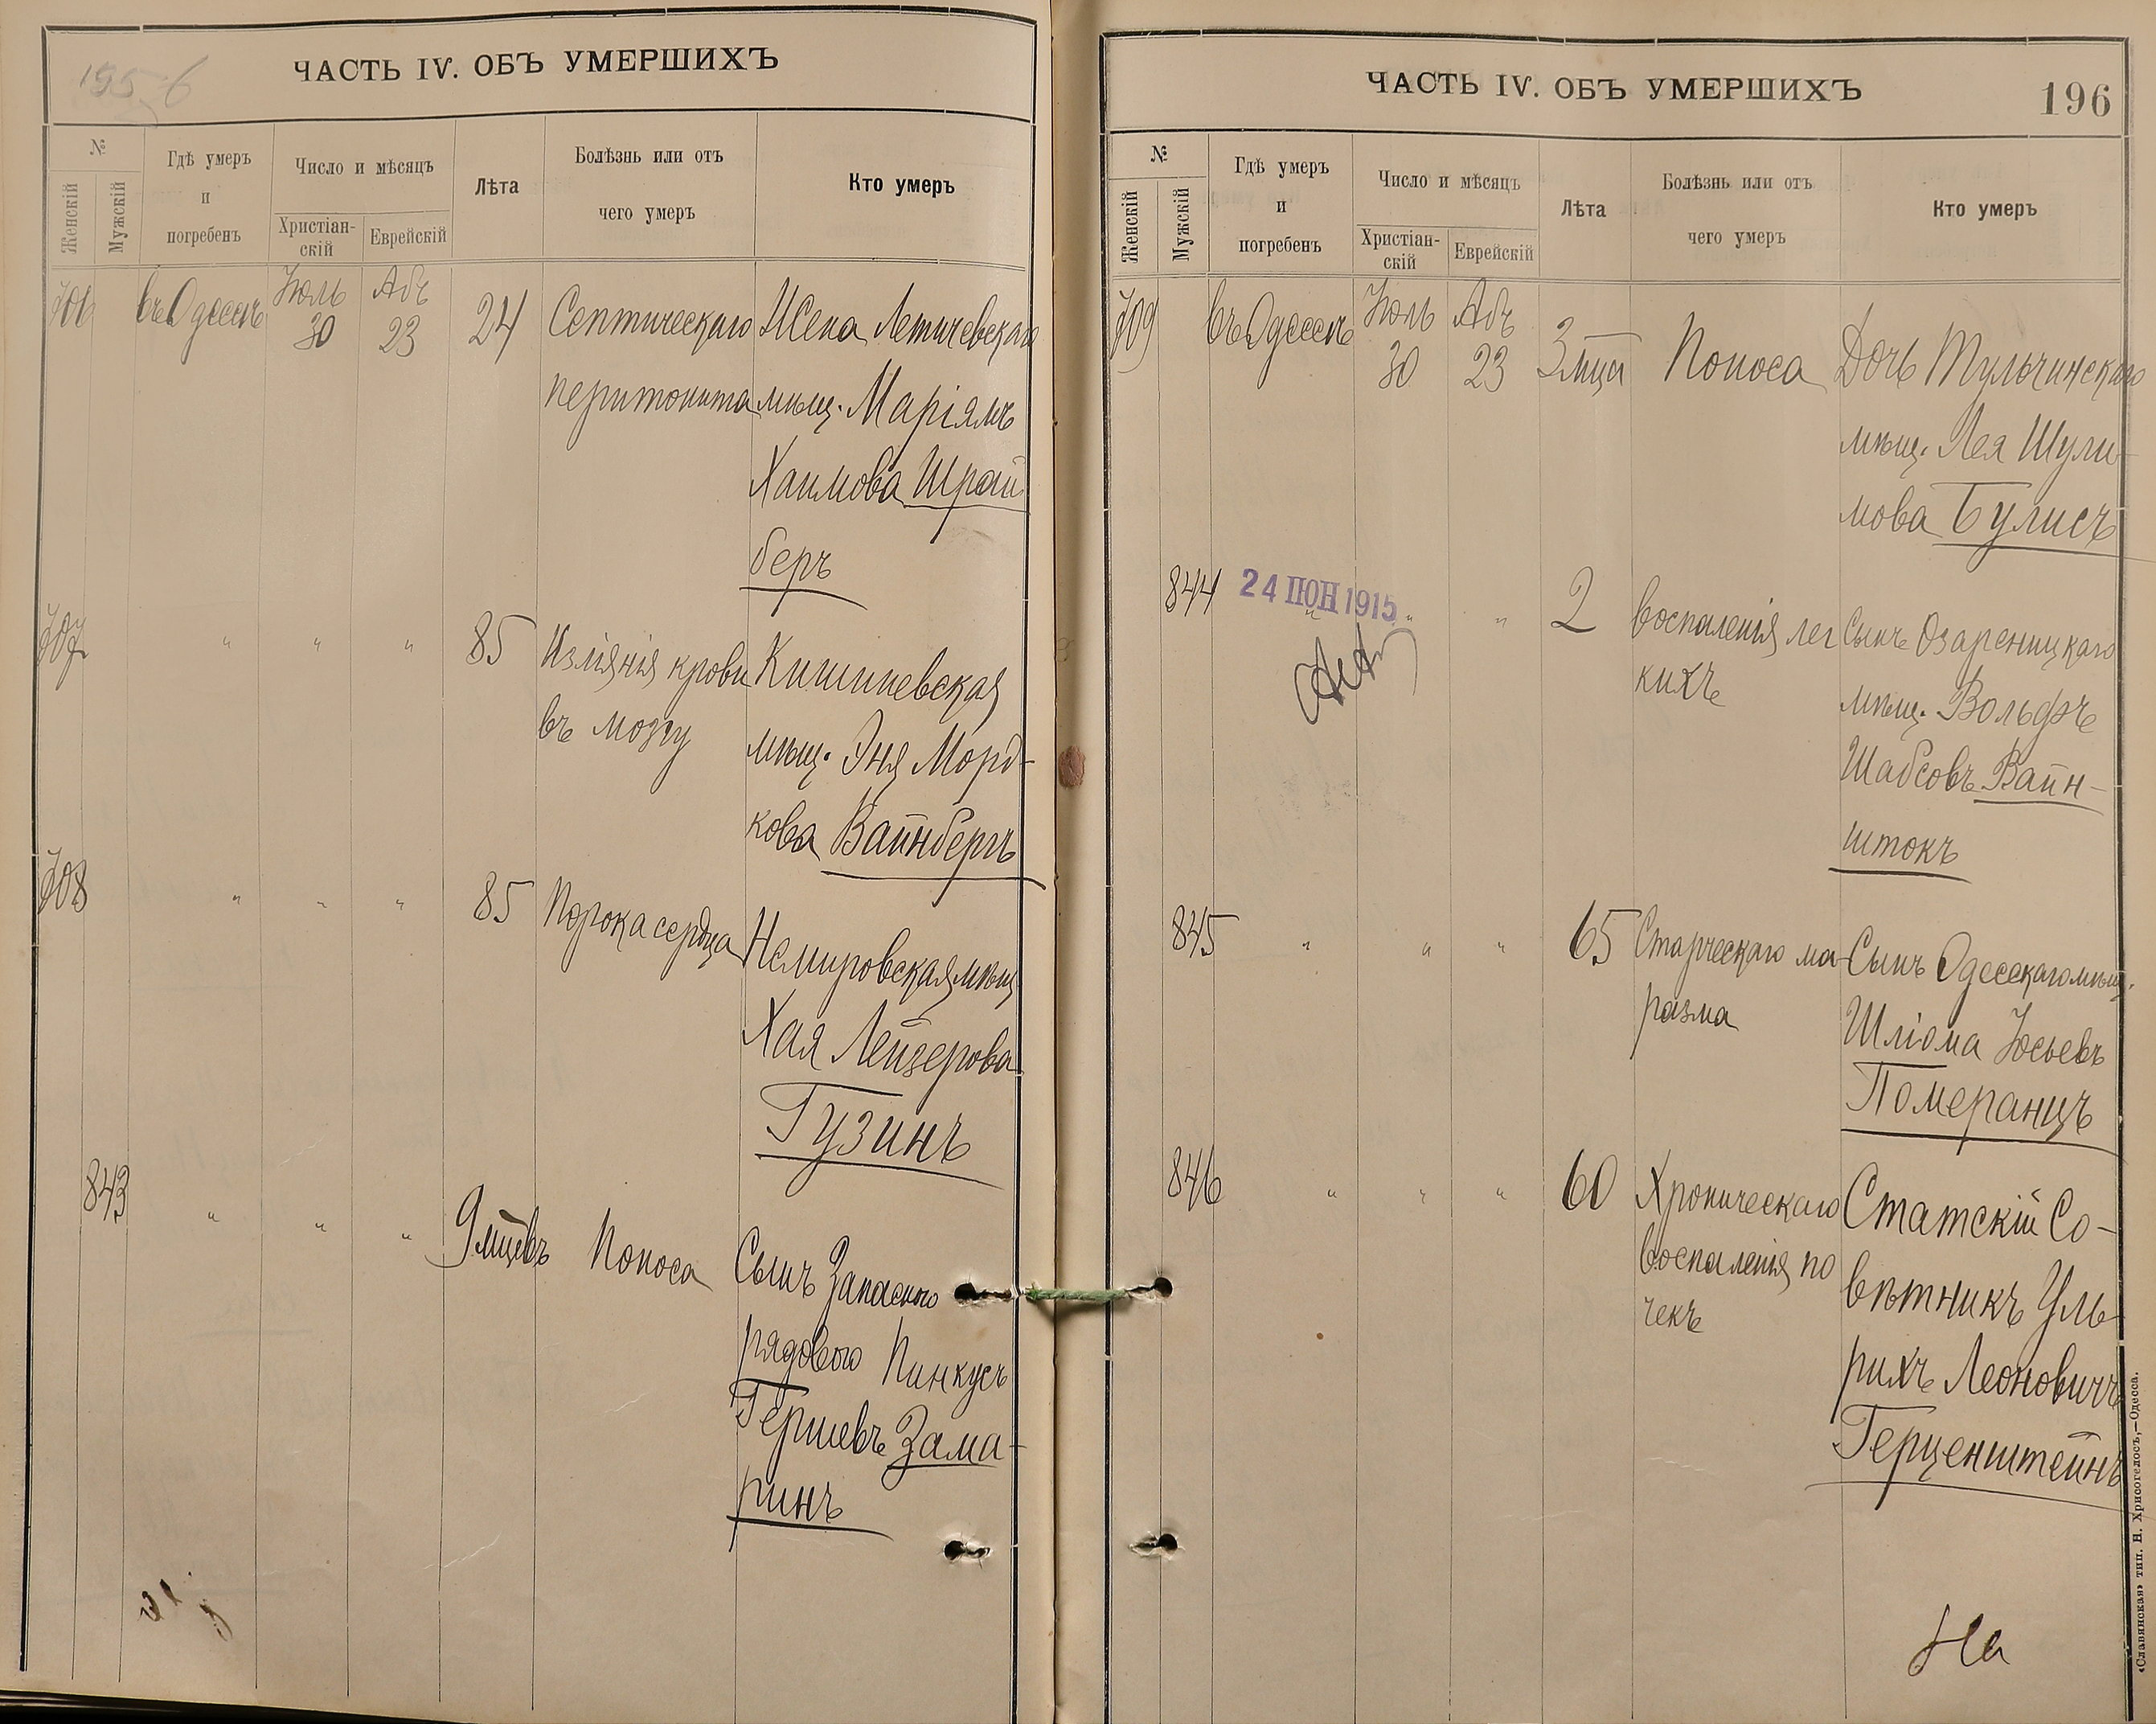 195 б
ЧАСТЬ IV. ОБЪ УМЕРШИХЪ
№
Женскій
Мужскій
Гдѣ умеръ
и
погребенъ
Число и мѣсяцъ
Христіан-
скій
Еврейскій
Лѣта
Болѣзнь или отъ
чего умеръ
Кто умеръ
706 въ Одессѣ Іюль 30 Абъ 23 24 Септическаго Жена Летичевскаго
перитонита мѣщ. Маріямъ
Хаимова Шрай
беръ
707 " " " 85 Изліянія крови Кишиневская
въ мозгу мѣщ. Эня Морд-
кова Вайнбергъ
708 " " " 85 Порока сердца Немировская мѣщ
Хая Лейзерова
Гузинъ
843 " " " 9 мцевъ Поноса Сынъ Запасного
рядового Пинкусъ
Гершевъ Зама-
ринъ
ЧАСТЬ IV. ОБЪ УМЕРШИХЪ
196
№
Женскій
Мужскій
Гдѣ умеръ
и
погребенъ
Число и мѣсяцъ
Христіан-
скій
Еврейскій
Лѣта
Болѣзнь или отъ
чего умеръ
Кто умеръ
709 въ Одессѣ Іюль 30 Абъ 23 3 мца Поноса Дочь Тульчинскаго
мѣщ. Лея Шули-
мова Булисъ
24 ІЮН 1915
844 " " " 2 Воспаленія лег Сынъ Озареницкаго
кихъ мѣщ. Вольфъ
Шабсовъ Вайн-
штокъ
845 " " " 65 Старческаго ма- Сынъ Одесскаго мѣщ.
разма Шліома Іосьевъ
Померанцъ
846 " " " 60 Хроническаго Статскій Со-
воспаленія по вѣтникъ Уль-
чекъ рихъ Леоновичъ
Герценштейнъ
На
«Славянская» тип. Н. Хрисогелосъ,—Одесса.